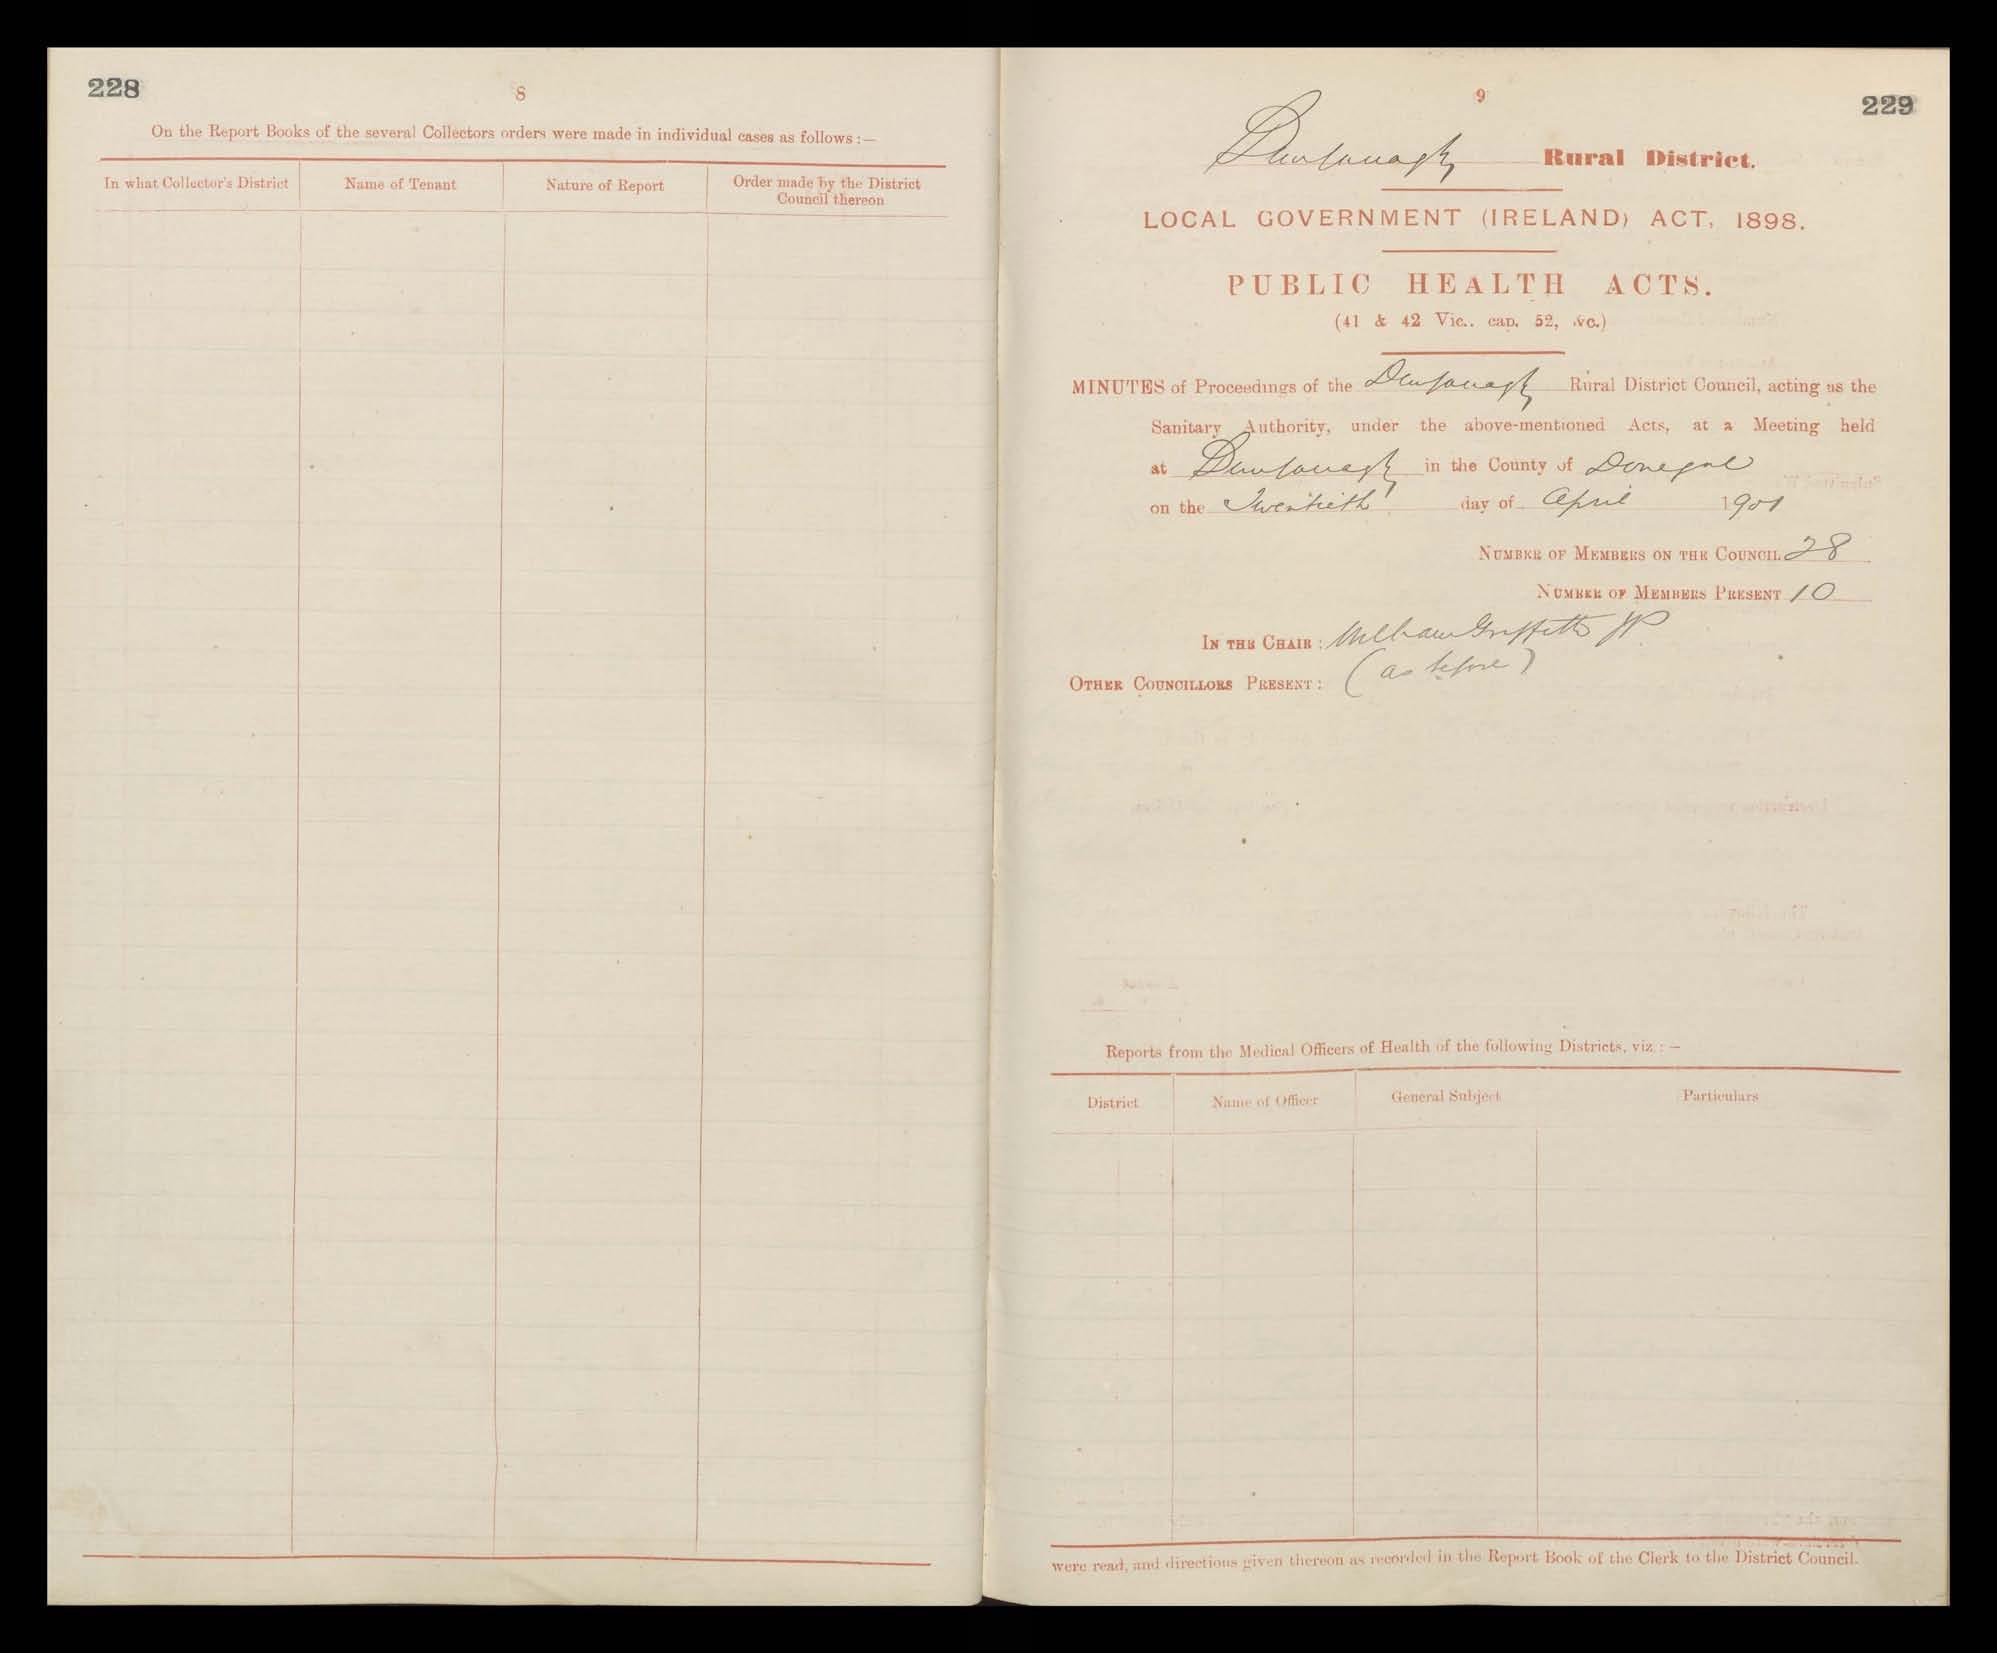 228
8
On the Report Books of the several Collectors orders were made in individual cases as follows :—
In what Collector's District
Name of Tenant
Nature of Report
Order made by the District
Council thereon
9
229
Dunfanaghy Rural District.
LOCAL GOVERNMENT (IRELAND) ACT, 1898.
PUBLIC HEALTH ACTS.
(41 & 42 Vic.. cap. 52, &c.)
MINUTES of Proceedings of the Dunfanaghy Rural District Council, acting as the
Sanitary Authority, under the above-mentioned Acts, at a Meeting held
at Dunfanaghy in the County of Donegal
on the Twentieth day of April 1901
NUMBER OF MEMBERS ON THE COUNCIL 28
NUMBER OF MEMBERS PRESENT 10
IN THE CHAIR : William Griffith JP
OTHER COUNCILLORS PRESENT : (as before)
Reports from the Medical Officers of Health of the following Districts, viz. :—
District
Name of Officer
General Subject
Particulars
were read, and directions given thereon as recorded in the Report Book of the Clerk to the District Council.